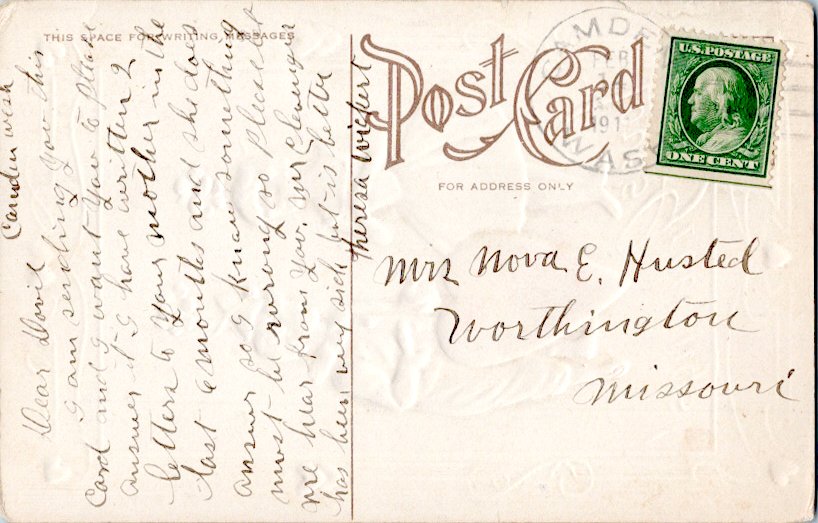 THIS SPACE FOR WRITING MESSAGES
Camden Wash
Dear Dovil
I am sending you this
Card and I want you to please
answer if I have written 2
letters to your mother in the
last 2 months and she does
answer so I know something
must be wrong so please let
me hear from you. Mr Clevenger
has been very sick but is better
Theresa Wichert
Post Card
FOR ADDRESS ONLY
CAMDEN
FEB
191
WASH
U.S. POSTAGE
ONE CENT
Mrs Nova E. Husted
Worthington
Missouri